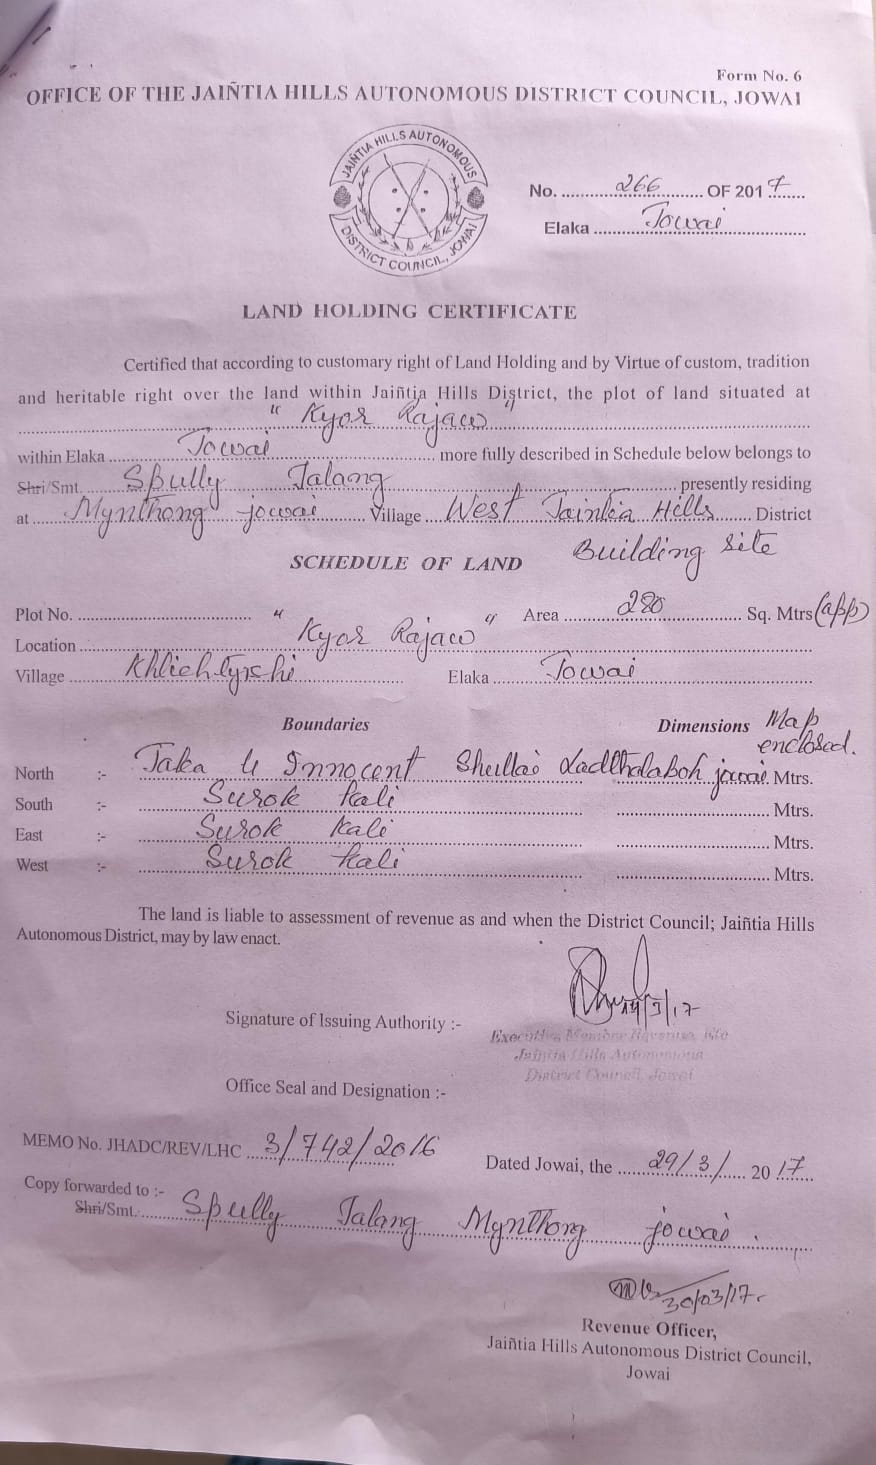 Form No. 6
OFFICE OF THE JAIÑTIA HILLS AUTONOMOUS DISTRICT COUNCIL, JOWAI
JAIÑTIA HILLS AUTONOMOUS
DISTRICT COUNCIL, JOWAI
No. 266 OF 2017
Elaka Jowai
LAND HOLDING CERTIFICATE
Certified that according to customary right of Land Holding and by Virtue of custom, tradition
and heritable right over the land within Jaiñtia Hills District, the plot of land situated at
"Kyor Rajaw"
within Elaka Jowai more fully described in Schedule below belongs to
Shri/Smt. Spully Talang presently residing
at Mynthong jowai Village West Jaintia Hills District
SCHEDULE OF LAND Building site
Plot No. Area 280 Sq. Mtrs (app)
Location "Kyor Rajaw"
Village Khliehtyrshi Elaka Jowai
Boundaries Dimensions Map enclosed.
North :- Jaka U Innocent Shullai Ladthalaboh jowai Mtrs.
South :- Surok Kali Mtrs.
East :- Surok Kali Mtrs.
West :- Surok Kali Mtrs.
The land is liable to assessment of revenue as and when the District Council; Jaiñtia Hills
Autonomous District, may by law enact.
Signature of Issuing Authority :-
Jaintia Hills Autonomous
District Council Jowai
Office Seal and Designation :-
MEMO No. JHADC/REV/LHC 3/742/2016
Dated Jowai, the 29/3/ 2017
Copy forwarded to :-
Shri/Smt. Spully Talang Mynthong jowai.
30/03/17
Revenue Officer,
Jaiñtia Hills Autonomous District Council,
Jowai